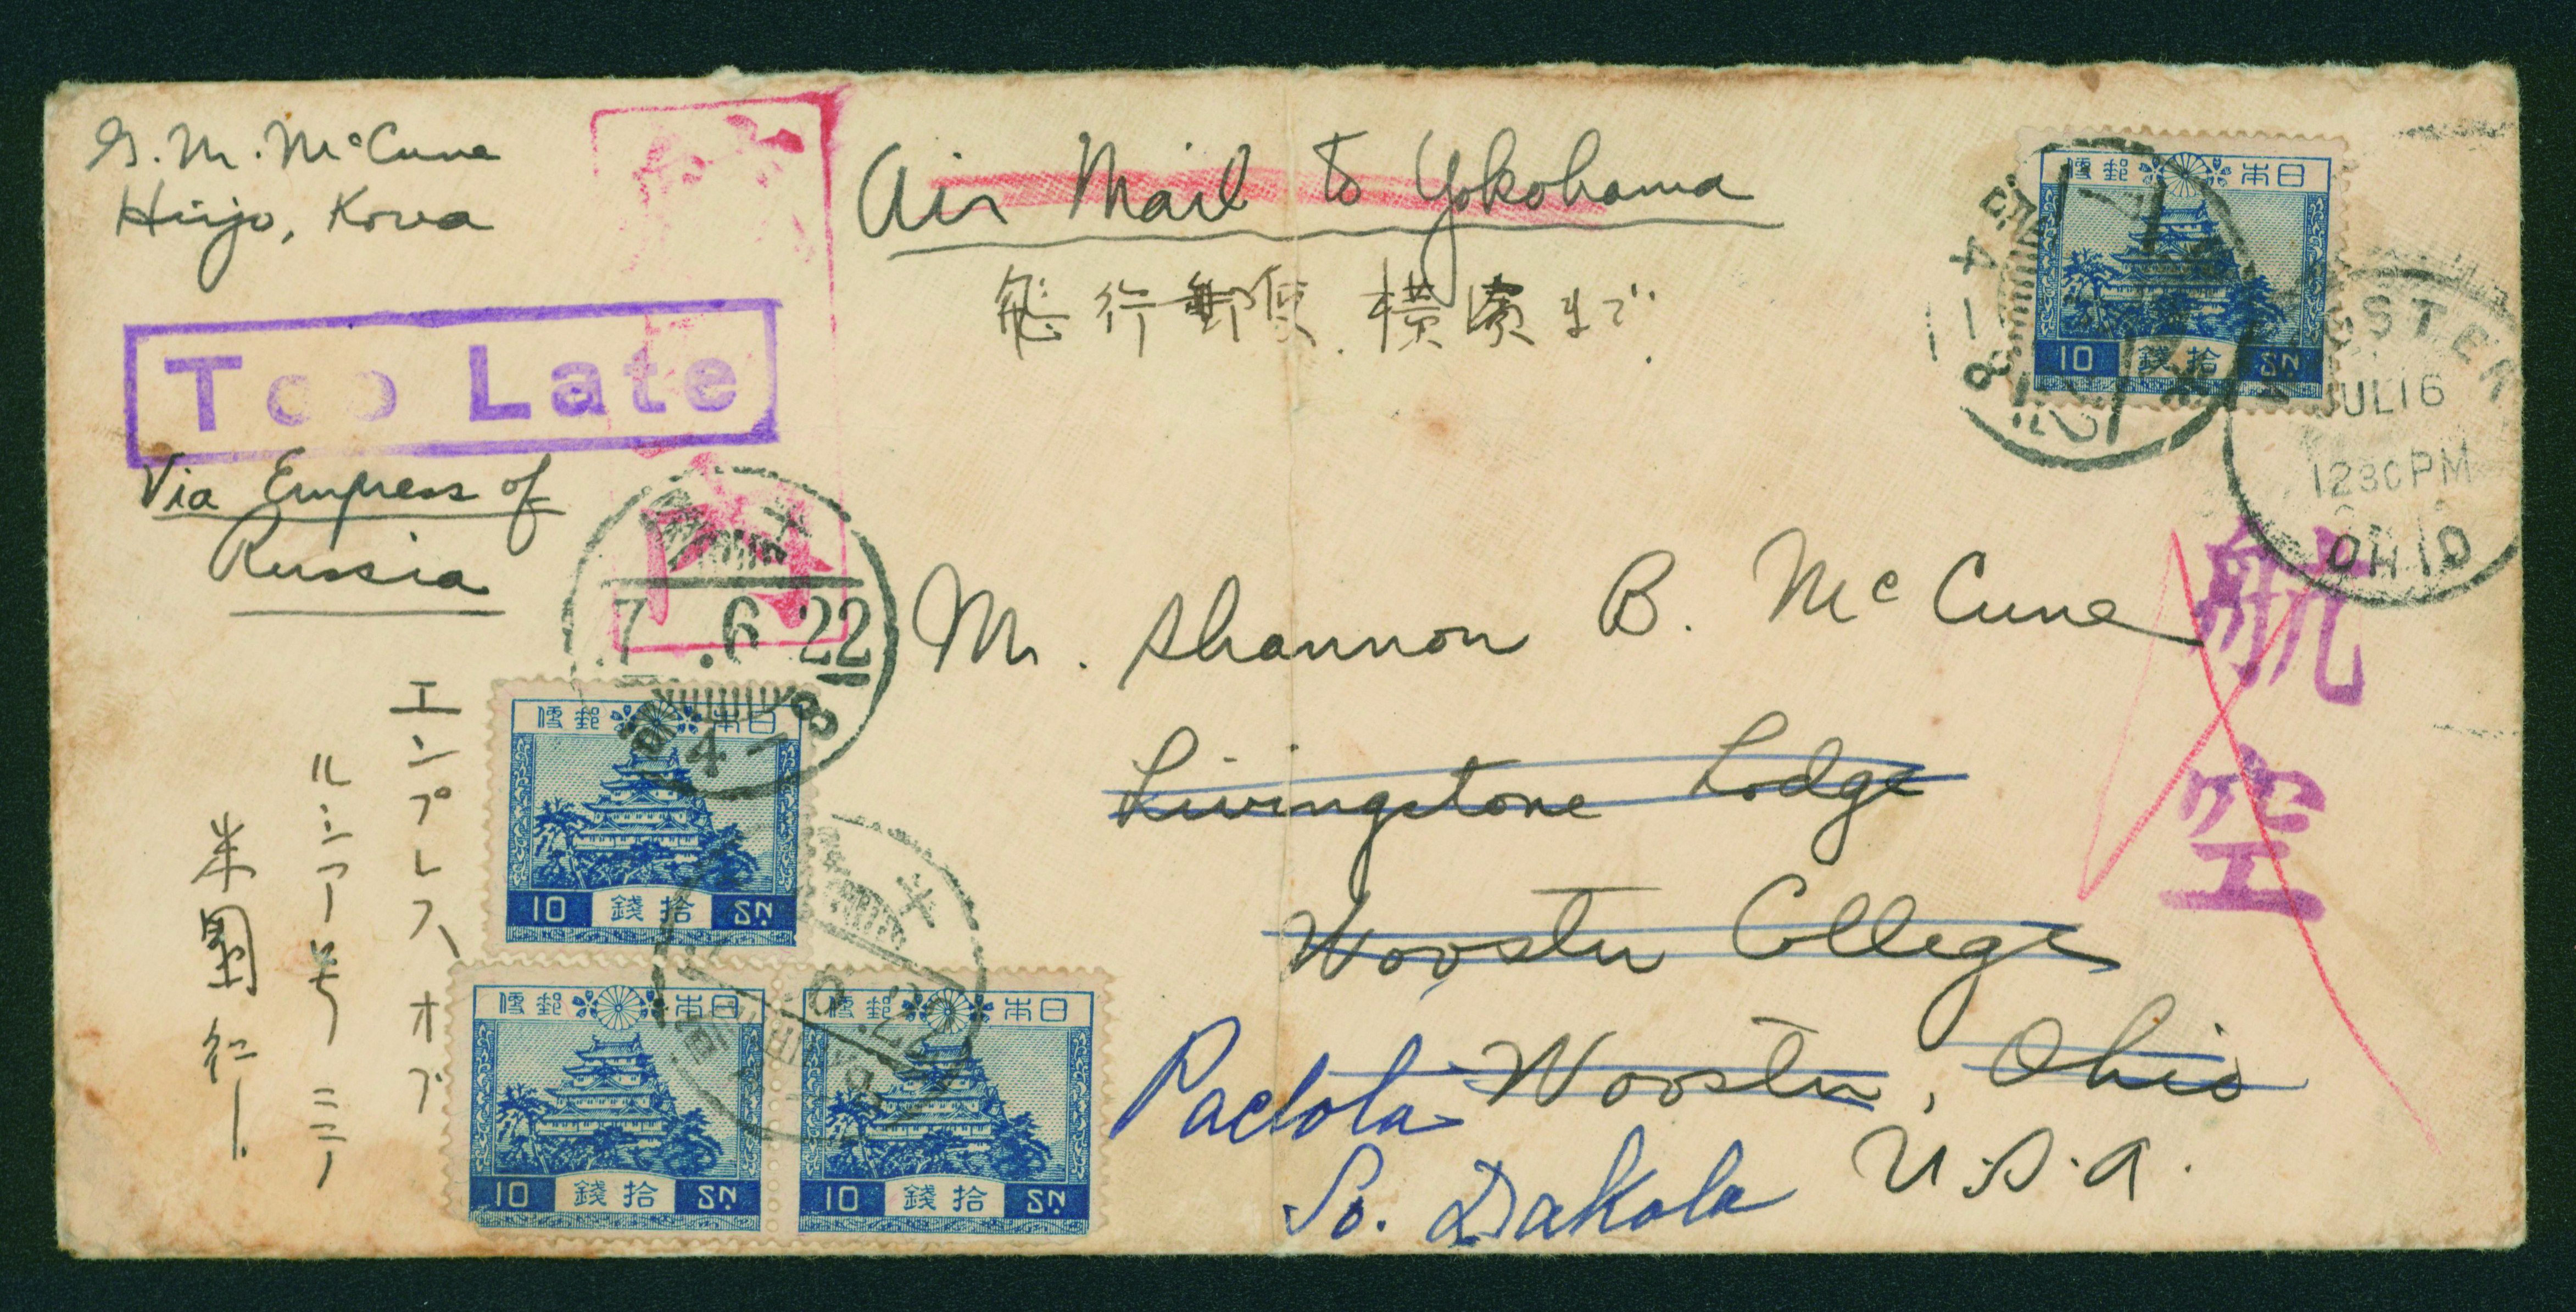 G. M. McCune
Heijo, Korea
Air Mail to Yokohama
飛行郵便 横濱まで
Too Late
Via Empress of
Russia
エンプレス オブ
ルシアー号 ミニ
米國行
7 .6 22
4-8
日本郵便
10 拾錢 SN
日本郵便
10 拾錢 SN
日本郵便
10 拾錢 SN
日本郵便
10 拾錢 SN
JUL 16
12 30 PM
OHIO
航空
Mr. Shannon B. McCune
Livingstone Lodge
Wooster College
Wooster, Ohio
U.S.A.
Pactola
So. Dakota